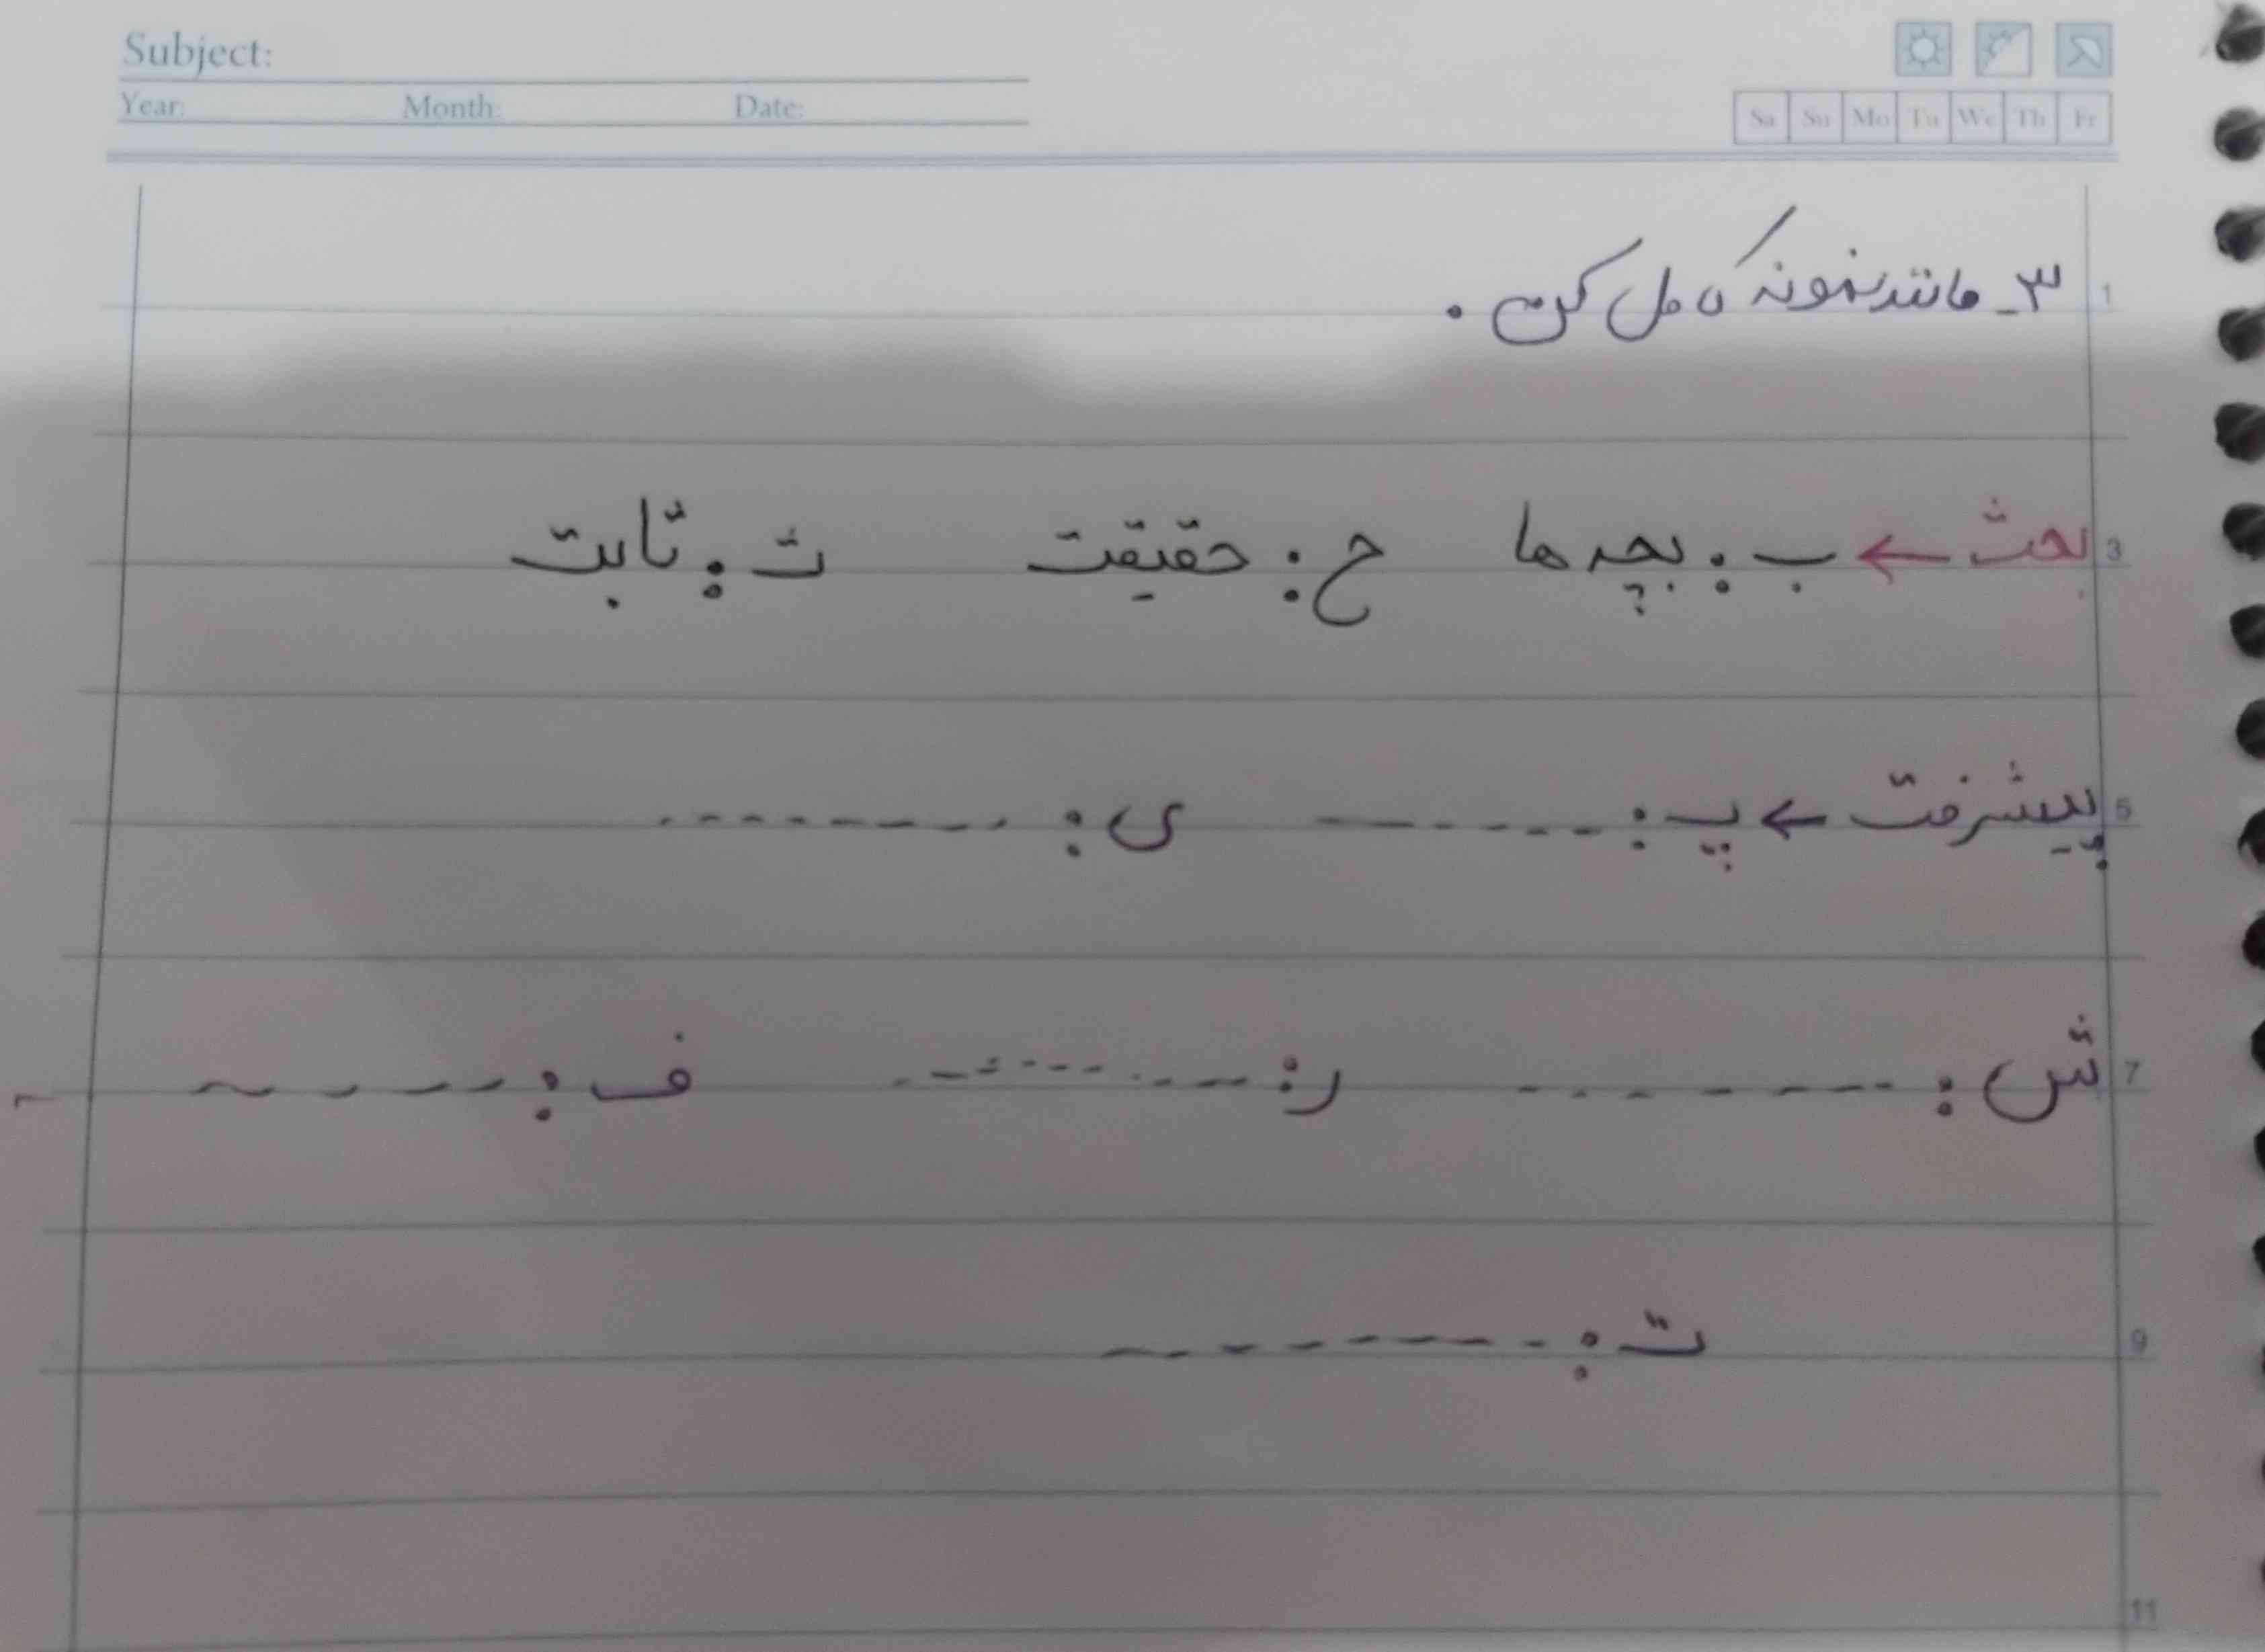 Subject:
Year: Month: Date:
Sa Su Mo Tu We Th Fr
1 ۳_ مانند نمونه کامل کن .
3 بحث ← ب : بچه ها ح : حقیقت ث : ثابت
5 پیشرفت ← پ : ------ ی : --------
7 ش : ------- ر : -------- ف : -----
9 ت : -------
11